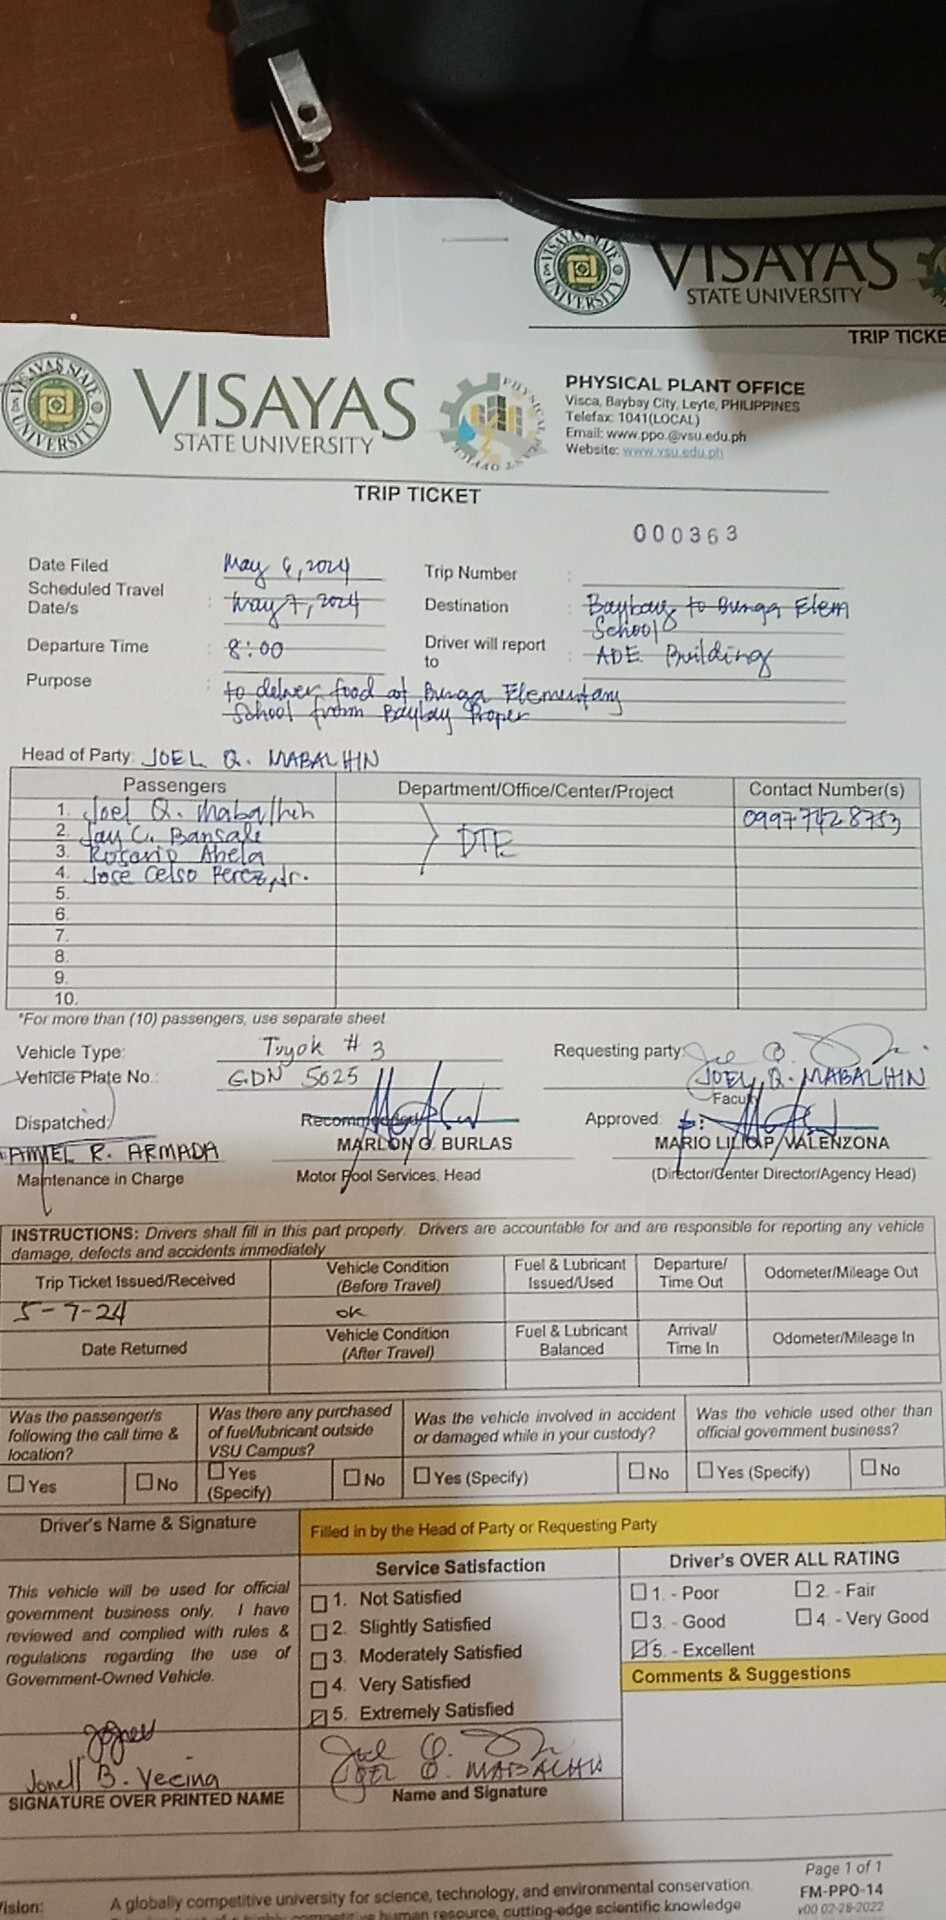 VISAYAS
STATE UNIVERSITY
TRIP TICKE
VISAYAS
STATE UNIVERSITY
PHYSICAL PLANT OFFICE
Visca, Baybay City, Leyte, PHILIPPINES
Telefax: 1041(LOCAL)
Email: www.ppo.@vsu.edu.ph
Website: www.vsu.edu.ph
TRIP TICKET
000363
Date Filed : May 6, 2024 Trip Number :
Scheduled Travel Date/s : May 7, 2024 Destination : Baybay to Bunga Elem School
Departure Time : 8:00 Driver will report to : ADE Building
Purpose : to deliver food at Bunga Elementary
School from Baybay Proper
Head of Party: JOEL Q. MABALHIN
Passengers Department/Office/Center/Project Contact Number(s)
1. Joel Q. Mabalhin 0997 7428753
2. Jay C. Bansale DTE
3. Rosario Abela
4. Jose Celso Perez, Jr.
5.
6.
7.
8.
9.
10.
*For more than (10) passengers, use separate sheet
Vehicle Type: Tuyok # 3 Requesting party:
Vehicle Plate No.: GDN 5025 JOEL Q. MABALHIN
Faculty
Dispatched: Recommended Approved:
R. ARMADA MARLON G. BURLAS MARIO LILIO P. VALENZONA
Maintenance in Charge Motor Pool Services, Head (Director/Center Director/Agency Head)
INSTRUCTIONS: Drivers shall fill in this part properly. Drivers are accountable for and are responsible for reporting any vehicle
damage, defects and accidents immediately
Trip Ticket Issued/Received Vehicle Condition (Before Travel) Fuel & Lubricant Issued/Used Departure/ Time Out Odometer/Mileage Out
5-7-24 ok
Date Returned Vehicle Condition (After Travel) Fuel & Lubricant Balanced Arrival/ Time In Odometer/Mileage In
Was the passenger/s following the call time & location? Was there any purchased of fuel/lubricant outside VSU Campus? Was the vehicle involved in accident or damaged while in your custody? Was the vehicle used other than official government business?
☐ Yes ☐ No ☐ Yes (Specify) ☐ No ☐ Yes (Specify) ☐ No ☐ Yes (Specify) ☐ No
Driver's Name & Signature Filled in by the Head of Party or Requesting Party
Service Satisfaction Driver's OVER ALL RATING
This vehicle will be used for official
government business only. I have
reviewed and complied with rules &
regulations regarding the use of
Government-Owned Vehicle.
☐ 1. Not Satisfied
☐ 2. Slightly Satisfied
☐ 3. Moderately Satisfied
☐ 4. Very Satisfied
☑ 5. Extremely Satisfied
☐ 1. - Poor ☐ 2. - Fair
☐ 3. - Good ☐ 4. - Very Good
☑ 5. - Excellent
Comments & Suggestions
Jonell B. Vecina
SIGNATURE OVER PRINTED NAME
JOEL Q. MABALHIN
Name and Signature
Page 1 of 1
FM-PPO-14
v00 02-28-2022
ision: A globally competitive university for science, technology, and environmental conservation.
human resource, cutting-edge scientific knowledge